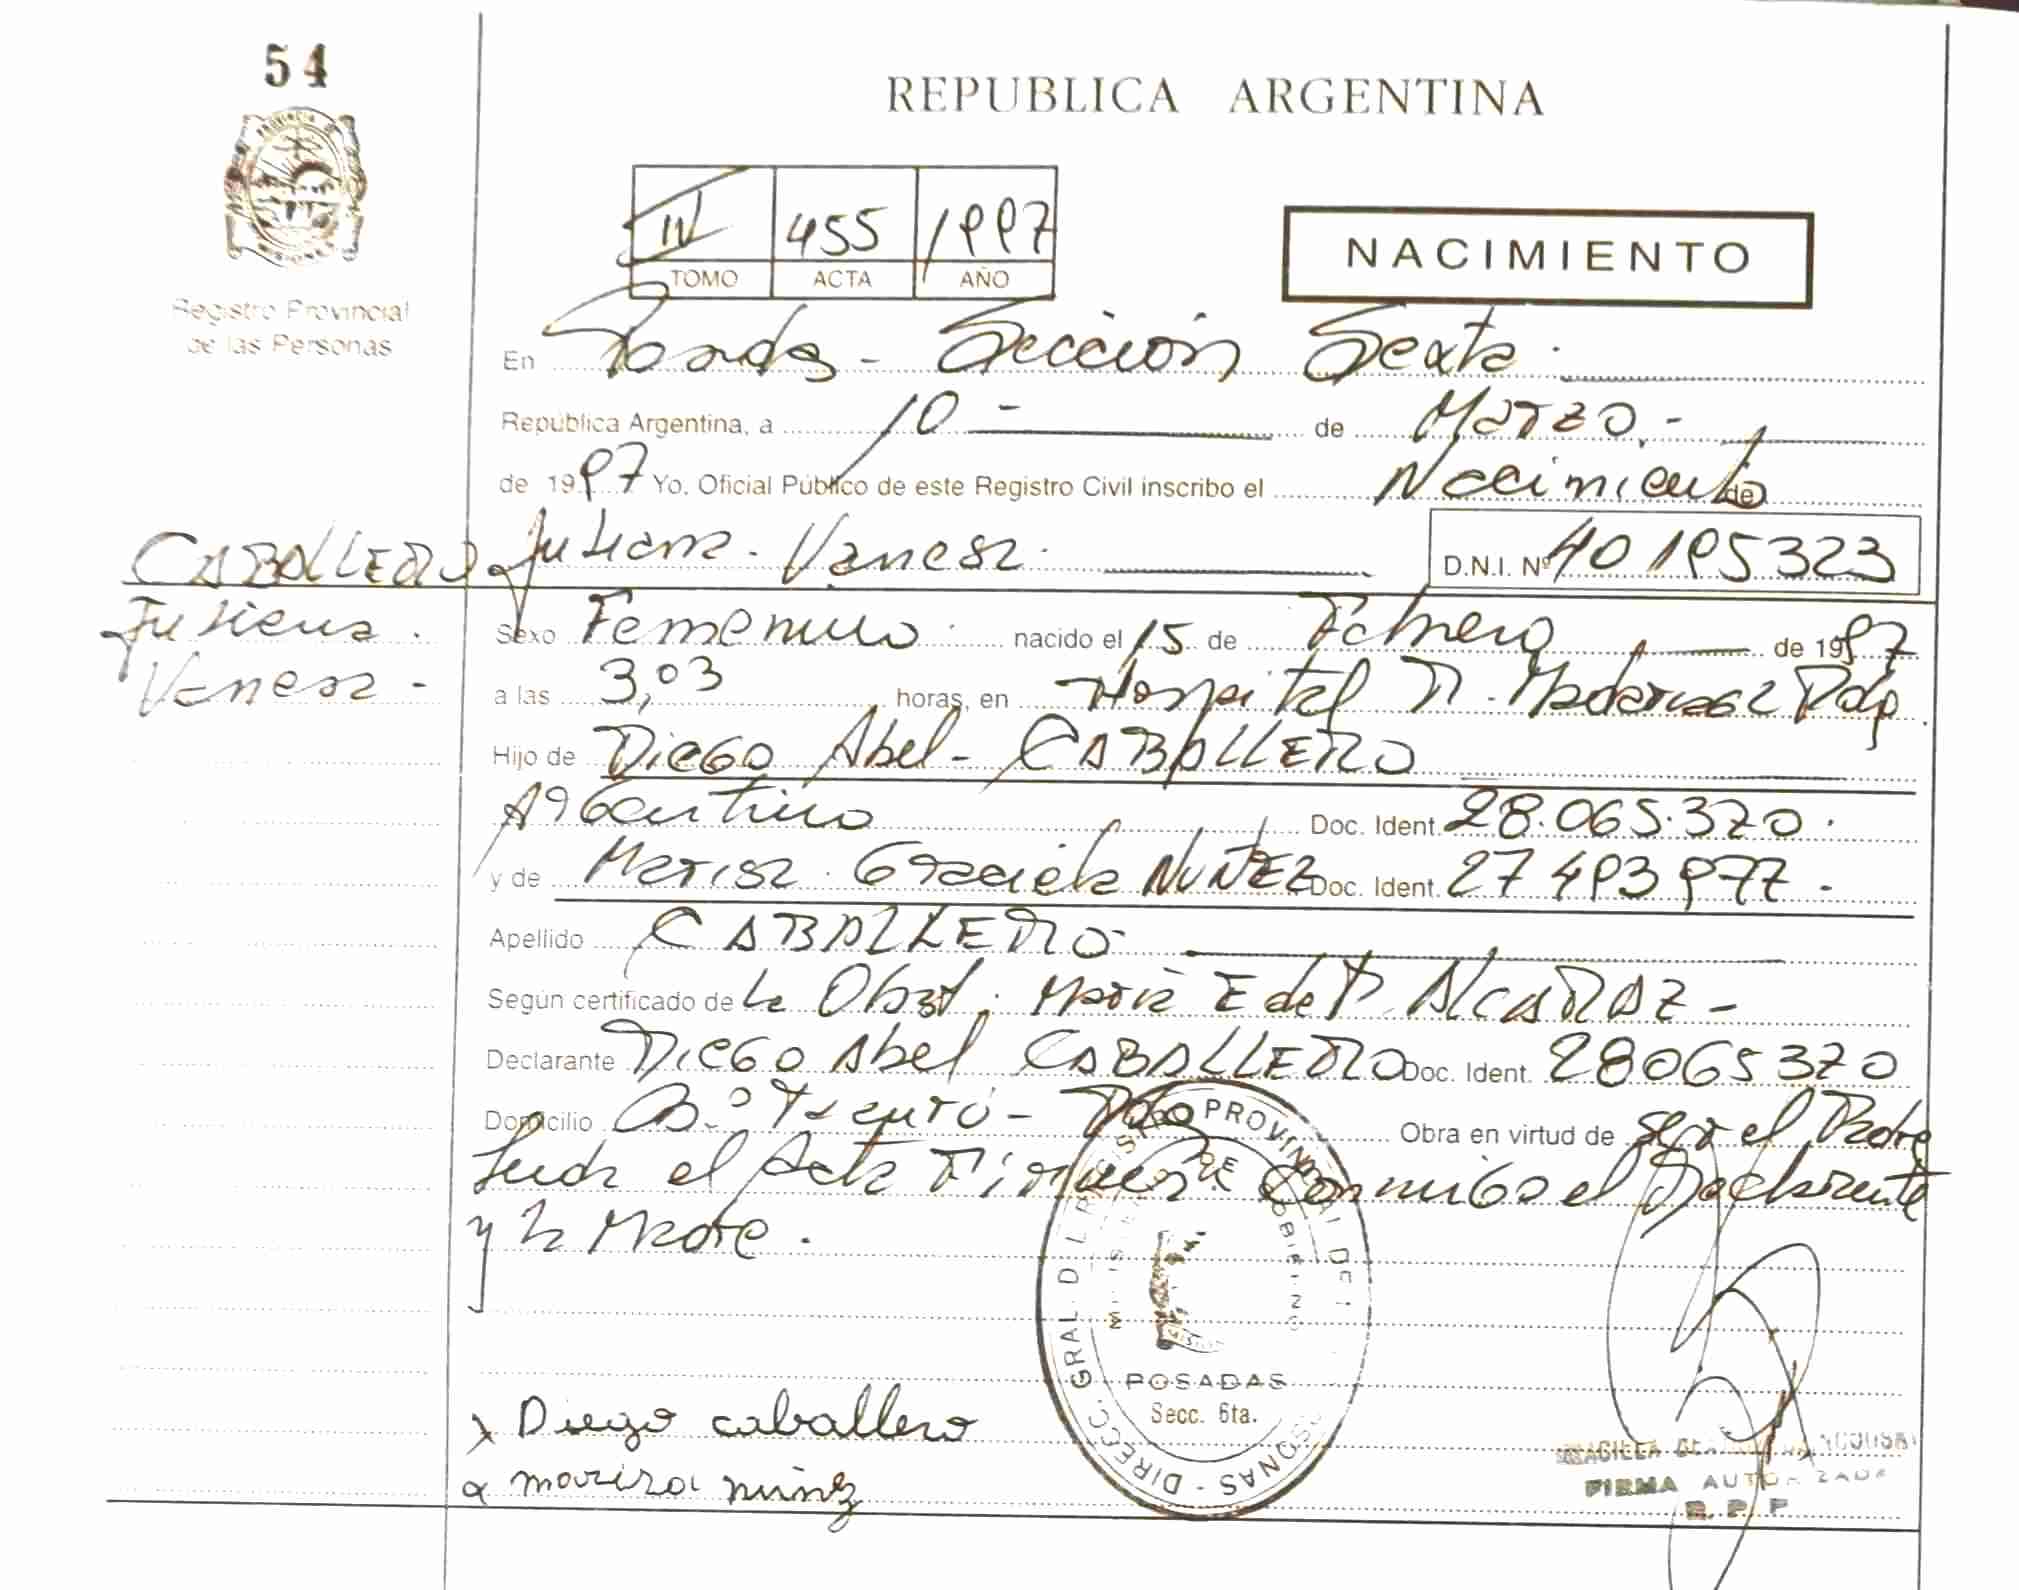 54
REPUBLICA ARGENTINA
Registro Provincial
de las Personas
IV 455 1997
TOMO ACTA AÑO
NACIMIENTO
En Posadas - Sección Sexta.
República Argentina, a 10 - de Marzo.-
de 1997 Yo, Oficial Público de este Registro Civil inscribo el Nacimiento de
Juliana - Vanesa. D.N.I. Nº 40195323
CABALLERO
Juliana.
Vanesa -
Sexo Femenino. nacido el 15 de Febrero de 1997
a las 3,03 horas, en Hospital R. Madariaga Pdas.
Hijo de Diego Abel - CABALLERO
Argentino Doc. Ident. 28.065.370.
y de Marisa Graciela NUÑEZ Doc. Ident. 27493977.
Apellido CABALLERO
Según certificado de la Obst. María E de R. ALCARAZ -
Declarante Diego Abel CABALLERO Doc. Ident. 28065370
Domicilio B.º - Obra en virtud de ser el Padre
el Acta Firman conmigo el Declarante
y la Madre.
DIRECC. GRAL. DEL REGISTRO PROVINCIAL DE LAS PERSONAS
MINISTERIO DE GOBIERNO
POSADAS
Secc. 6ta.
x Diego caballero
x marisa núñez
FIRMA AUTORIZADA
R. P. P.